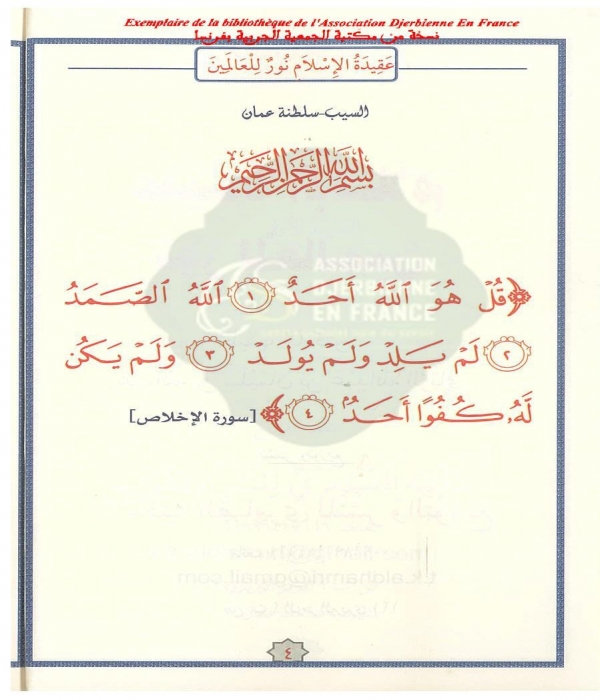 Exemplaire de la bibliothèque de l'Association Djerbienne En France
نسخة من مكتبة الجمعية الجربية بفرنسا
عَقِيدَةُ الإِسْلَامِ نُورٌ لِلْعَالَمِينَ
السيب-سلطنة عمان
بسم الله الرحمن الرحيم
﴿قُلْ هُوَ ٱللَّهُ أَحَدٌ ١ ٱللَّهُ ٱلصَّمَدُ
٢ لَمْ يَلِدْ وَلَمْ يُولَدْ ٣ وَلَمْ يَكُن
لَّهُۥ كُفُوًا أَحَدٌۢ ٤﴾ [سورة الإخلاص]
ASSOCIATION
DJERBIENNE
EN FRANCE
t.k.aldhamri@gmail.com
٤